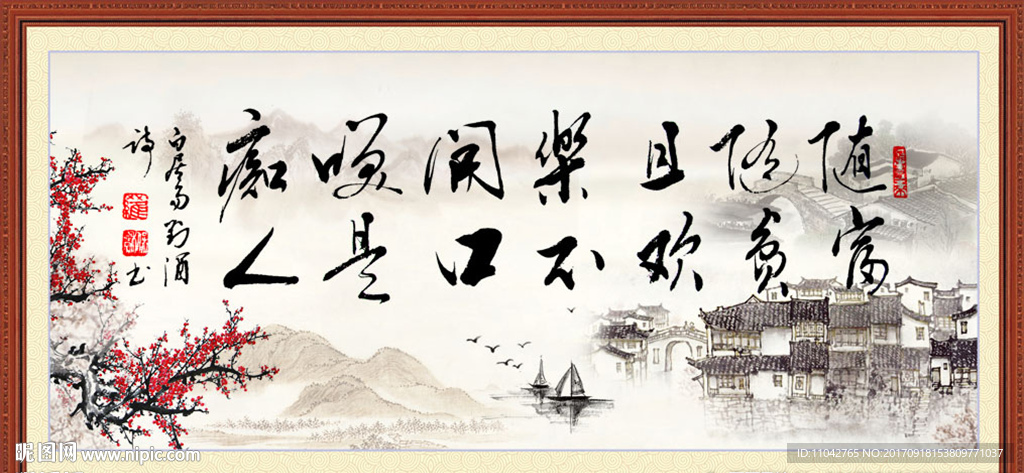 随富
随貧
且欢
樂不
開口
咲是
痴人
白居易對酒
诗
书
昵图网 www.nipic.com
ID:11042765 NO:20170918153809771037